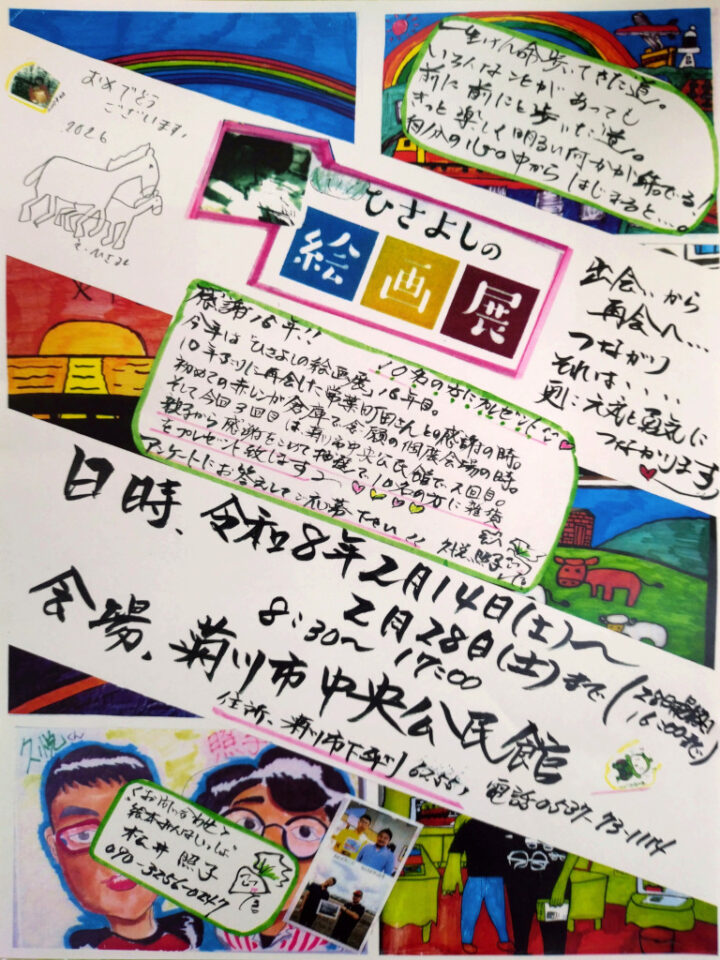 おめでとう
ございます。
2026
え・ひさよし
一生けん命歩いてきた道。
いろんなことがあっても
前に前にと歩いた道。
きっと楽しく明るい何かが待ってる!
自分の心の中からはじまると…。
ひさよしの
絵画展
出会いから
再会へ…
つながり
それは、、、、、
更に元気と勇気に
つながります
感謝16年!!
10名の方にプレゼント
今年は「ひさよしの絵画展」16年目。
10年ぶりに再会した
さんとの感謝の時。
初めての赤レンガ倉庫で念願の個展会場の時。
そして今回3回目は菊川市中央公民館で、2回目。
親子から感謝をこめて抽選で、10名の方に雑貨
をプレゼント致します
アンケートにお答えしてご応募下さい!!
久悦 照子
日時、令和8年2月14日(土)〜
2月28日(土)まで
(28日最終日
16:00まで)
8:30〜17:00
会場、菊川市中央公民館
住所、菊川市下平川6255
電話0537-73-1114
久悦くん
照子
<お問い合わせ>
松井 照子
090-3256-0247